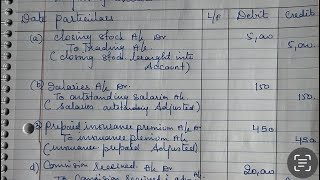 Date Particulars L/F Debit Credit
(a) Closing Stock A/c Dr 5,000
To Trading A/c 5,000
(Closing stock brought into
Account)
(b) Salaries A/c Dr 150
To outstanding salaries A/c 150
(Salaries outstanding Adjusted)
Prepaid insurance premium A/c Dr 450
To insurance premium A/c 450
(insurance prepaid Adjusted)
d) Received A/c Dr 20,000